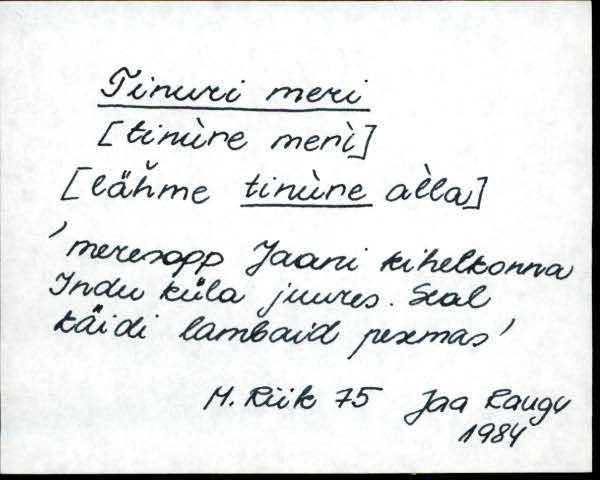 Tinuri meri
[tinùre merì]
[lähme tinùre àlla]
'meresopp Jaani kihelkonna
Indu küla juures. Seal
käidi lambaid pesmas'
M. Riik 75 Jaa Raugu
1984